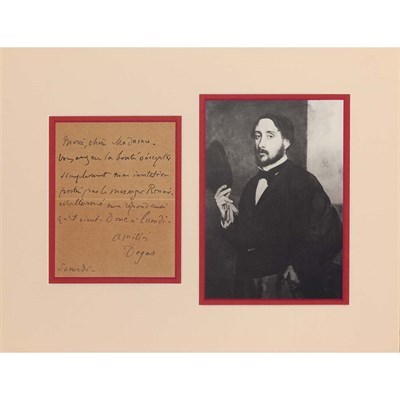 Merci chère Madame.
Vous avez la bonté d'accepter
simplement mon invitation
portée par le message
qu'il vient. Donc à lundi.
Amitiés
Degas
Samedi.